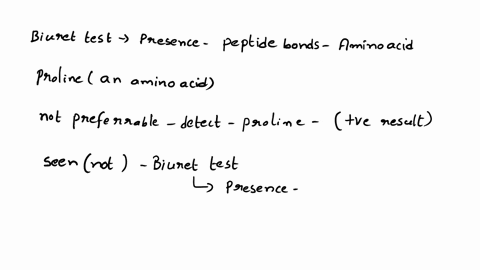 Biuret test → Presence - peptide bonds - Amino acid
Proline ( an amino acid)
not preferrable - detect - proline - (+ve result)
seen (not) - Biuret test
↳ Presence -